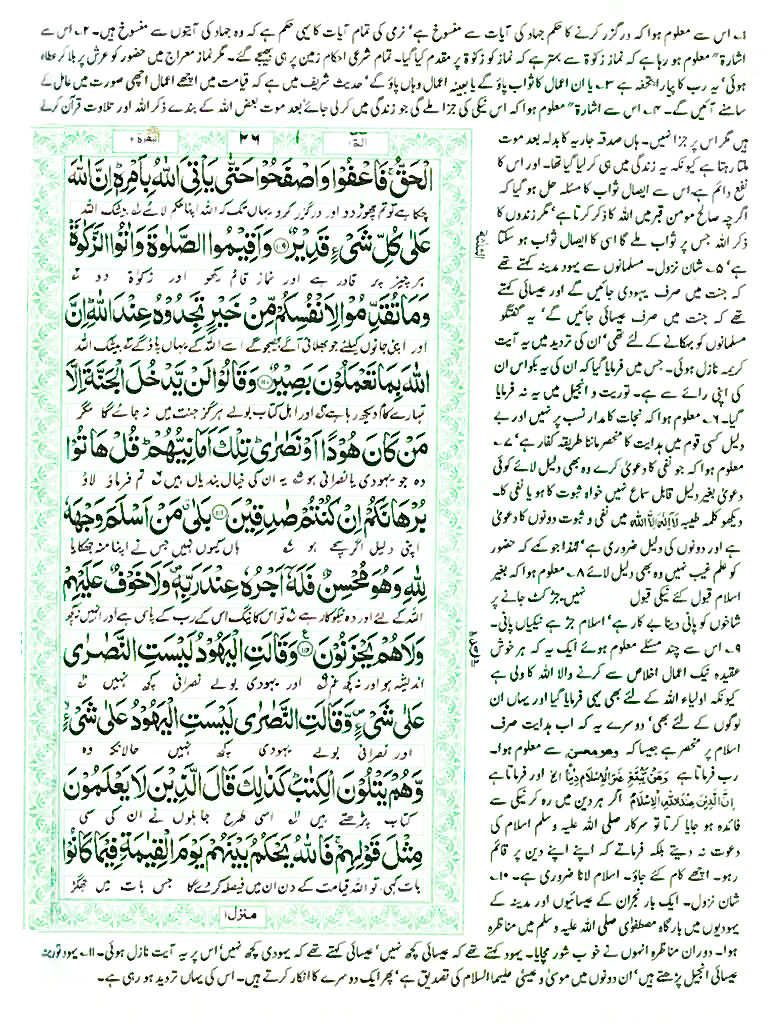 ۱۔ اس سے معلوم ہوا کہ درگزر کرنے کا حکم جہاد کی آیات سے منسوخ ہے‘ نرمی کی تمام آیات کا یہی حکم ہے کہ وہ جہاد کی آیتوں سے منسوخ ہیں۔ ۲۔ اس سے
اشارۃ" معلوم ہو رہا ہے کہ نماز زکوٰۃ سے بہتر ہے کہ نماز کو زکوٰۃ پر مقدم کیا گیا۔ تمام شرعی احکام زمین پر ہی بھیجے گئے۔ مگر نماز معراج میں حضور کو عرش پر بلا کر عطاء
ہوئی‘ یہ رب کا پیارا تحفہ ہے ۳۔ یا ان اعمال کا ثواب پاؤ گے یا بعینہ اعمال وہاں پاؤ گے‘ حدیث شریف میں ہے کہ قیامت میں اچھے اعمال اچھی صورت میں عامل کے
سامنے آئیں گے۔ ۴۔ اس سے اشارۃ" معلوم ہوا کہ اس نیکی کی جزا ملے گی جو زندگی میں کر لی جائے بعد موت بعض اللہ کے بندے ذکر اللہ اور تلاوت قرآن کرتے
ہیں مگر اس پر جزا نہیں۔ ہاں صدقہ جاریہ کا بدلہ بعد موت
ملتا رہتا ہے کیونکہ یہ زندگی میں ہی کر لیا گیا تھا۔ اور اس کا
نفع دائم ہے اس سے ایصال ثواب کا مسئلہ حل ہو گیا کہ
اگرچہ صالح مومن قبر میں اللہ کا ذکر کرتا ہے‘ مگر زندوں کا
ذکر اللہ جس پر ثواب ملے گا اس کا ایصال ثواب ہو سکتا
ہے‘ ۵۔ شان نزول۔ مسلمانوں سے یہود مدینہ کہتے تھے
کہ جنت میں صرف یہودی جائیں گے اور عیسائی کہتے
تھے کہ جنت میں صرف عیسائی جائیں گے‘ یہ گفتگو
مسلمانوں کو بہکانے کے لئے تھی‘ ان کی تردید میں یہ آیت
کریمہ نازل ہوئی۔ جس میں فرمایا گیا کہ ان کی یہ بکواس ان
کی اپنی رائے سے ہے۔ توریت و انجیل میں یہ نہ فرمایا
گیا۔ ۶۔ معلوم ہوا کہ نجات کا مدار نسب پر نہیں اور بے
دلیل کسی قوم میں ہدایت کا منحصر ماننا طریقہ کفار ہے‘ ۷۔
معلوم ہوا کہ جو نفی کا دعویٰ کرے وہ بھی دلیل لائے کوئی
دعویٰ بغیر دلیل قابل سماع نہیں خواہ ثبوت کا ہو یا نفی کا۔
دیکھو کلمہ طیبہ لا الہ الا اللہ میں نفی و ثبوت دونوں کا دعویٰ
ہے اور دونوں کی دلیل ضروری ہے‘ لہٰذا جو کہے کہ حضور
کو علم غیب نہیں وہ بھی دلیل لائے ۸۔ معلوم ہوا کہ بغیر
اسلام قبول کئے نیکی قبول نہیں۔ جڑ کٹ جانے پر
شاخوں کو پانی دینا بے کار ہے‘ اسلام جڑ ہے نیکیاں پانی۔
۹۔ اس سے چند مسئلے معلوم ہوئے ایک یہ کہ ہر خوش
عقیدہ نیک اعمال اخلاص سے کرنے والا اللہ کا ولی ہے
کیونکہ اولیاء اللہ کے لئے بھی یہی فرمایا گیا اور یہاں ان
لوگوں کے لئے بھی‘ دوسرے یہ کہ اب ہدایت صرف
اسلام پر منحصر ہے جیسا کہ وھو محسن سے معلوم ہوا۔
رب فرماتا ہے وَمَنْ يَّبْتَغِ غَيْرَ الْاِسْلَامِ دِيْنًا الخ اور فرماتا ہے
اِنَّ الدِّيْنَ عِنْدَ اللّٰهِ الْاِسْلَامُ اگر ہر دین میں رہ کر نیکی سے
فائدہ ہو جایا کرتا تو سرکار صلی اللہ علیہ وسلم اسلام کی
دعوت نہ دیتے بلکہ فرماتے کہ اپنے اپنے دین پر قائم
رہو۔ اچھے کام کئے جاؤ۔ اسلام لانا ضروری ہے۔ ۱۰۔
شان نزول۔ ایک بار نجران کے عیسائیوں اور مدینہ کے
یہودیوں میں بارگاہ مصطفوی صلی اللہ علیہ وسلم میں مناظرہ
ہوا۔ دوران مناظرہ انہوں نے خوب شور مچایا۔ یہود کہتے تھے کہ عیسائی کچھ نہیں‘ عیسائی کہتے تھے کہ یہودی کچھ نہیں‘ اس پر یہ آیت نازل ہوئی۔ ۱۱۔ یہود توریت
عیسائی انجیل پڑھتے ہیں‘ ان دونوں میں موسیٰ و عیسیٰ علیہما السلام کی تصدیق ہے‘ پھر ایک دوسرے کا انکار کرتے ہیں۔ اس کی یہاں تردید ہو رہی ہے۔
البقرة ۲
۲۶
الٓمّٓ ۱
الْحَقُّ ۚ فَاعْفُوْا وَاصْفَحُوْا حَتّٰى يَاْتِيَ اللّٰهُ بِاَمْرِهٖ ؕ اِنَّ اللّٰهَ
چکا ہے تو تم چھوڑ دو اور درگزر کرو یہاں تک کہ اللہ اپنا حکم لائے بیشک اللہ
عَلٰى كُلِّ شَيْءٍ قَدِيْرٌ ﴿۱۰۹﴾ وَاَقِيْمُوا الصَّلٰوةَ وَاٰتُوا الزَّكٰوةَ ؕ
ہر چیز پر قادر ہے اور نماز قائم رکھو اور زکوٰۃ دو
وَمَا تُقَدِّمُوْا لِاَنْفُسِكُمْ مِّنْ خَيْرٍ تَجِدُوْهُ عِنْدَ اللّٰهِ ؕ اِنَّ
اور اپنی جانوں کیلئے جو بھلائی آگے بھیجو گے اسے اللہ کے یہاں پاؤ گے بیشک اللہ
اللّٰهَ بِمَا تَعْمَلُوْنَ بَصِيْرٌ ﴿۱۱۰﴾ وَقَالُوْا لَنْ يَّدْخُلَ الْجَنَّةَ اِلَّا
تمہارے کام دیکھ رہا ہے اور اہل کتاب بولے ہرگز جنت میں نہ جائے گا مگر
مَنْ كَانَ هُوْدًا اَوْ نَصٰرٰى ؕ تِلْكَ اَمَانِيُّهُمْ ؕ قُلْ هَاتُوْا
وہ جو یہودی یا نصرانی ہو یہ ان کی خیال بندیاں ہیں تم فرماؤ لاؤ
بُرْهَانَكُمْ اِنْ كُنْتُمْ صٰدِقِيْنَ ﴿۱۱۱﴾ بَلٰى ۚ مَنْ اَسْلَمَ وَجْهَهٗ
اپنی دلیل اگر سچے ہو ہاں کیوں نہیں جس نے اپنا منہ جھکایا
لِلّٰهِ وَهُوَ مُحْسِنٌ فَلَهٗٓ اَجْرُهٗ عِنْدَ رَبِّهٖ ۪ وَلَا خَوْفٌ عَلَيْهِمْ
اللہ کے لئے اور وہ نیکوکار ہے تو اس کا نیگ اس کے رب کے پاس ہے اور انہیں نہ کچھ
وَلَا هُمْ يَحْزَنُوْنَ ﴿۱۱۲﴾ وَقَالَتِ الْيَهُوْدُ لَيْسَتِ النَّصٰرٰى
اندیشہ ہو اور نہ کچھ غم اور یہودی بولے نصرانی کچھ نہیں
عَلٰى شَيْءٍ ۪ وَّقَالَتِ النَّصٰرٰى لَيْسَتِ الْيَهُوْدُ عَلٰى شَيْءٍ ۙ
اور نصرانی بولے یہودی کچھ نہیں حالانکہ وہ
وَّهُمْ يَتْلُوْنَ الْكِتٰبَ ؕ كَذٰلِكَ قَالَ الَّذِيْنَ لَا يَعْلَمُوْنَ
کتاب پڑھتے ہیں اسی طرح جاہلوں نے ان کی سی
مِثْلَ قَوْلِهِمْ ۚ فَاللّٰهُ يَحْكُمُ بَيْنَهُمْ يَوْمَ الْقِيٰمَةِ فِيْمَا كَانُوْا
بات کہی، تو اللہ قیامت کے دن ان میں فیصلہ کر دے گا جس بات میں جھگڑ
منزل ۱